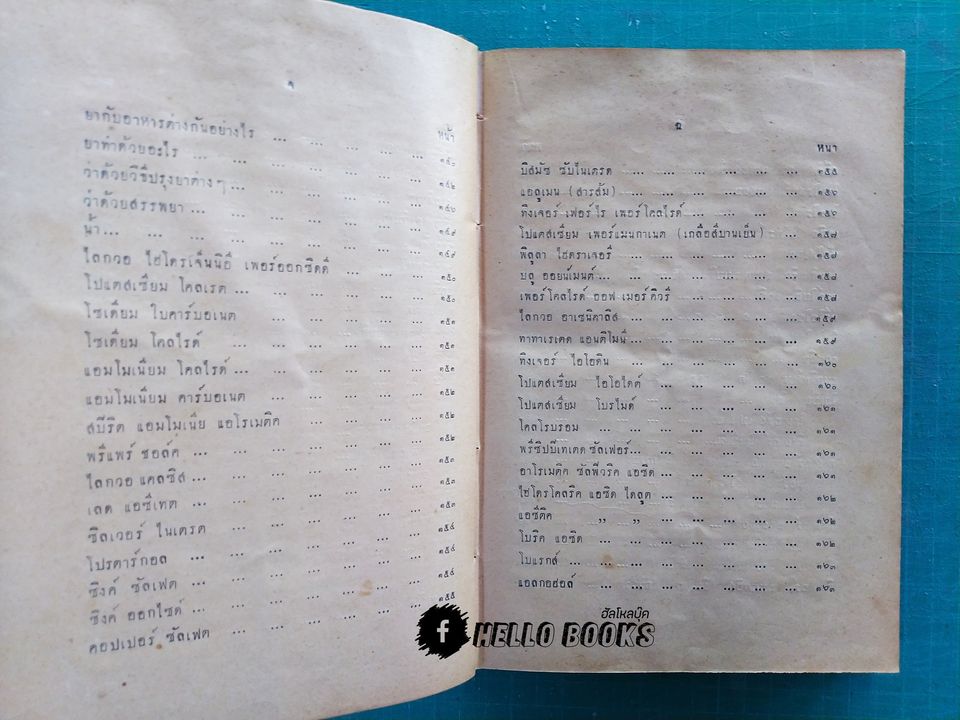 หน้า
ยากับอาหารต่างกันอย่างไร ... ... ... ... ... ๑๔๐
ยาทำด้วยอะไร ... ... ... ... ... ... ๑๔๒
ว่าด้วยวิธีปรุงยาต่าง ๆ ... ... ... ... ... ๑๔๖
ว่าด้วยสรรพยา ... ... ... ... ... ... ๑๔๙
น้ำ ... ... ... ... ... ... ... ๑๔๙
ไลกวอ ไฮโดรเจ็นนิอี เพอร์ออกซิดดี ... ... ... ๑๕๐
โปแตสเซียม โคลเรต ... ... ... ... ... ๑๕๐
โซเดียม ไบคาร์บอเนต ... ... ... ... ... ๑๕๑
โซเดียม โคลไรด์ ... ... ... ... ... ๑๕๑
แอมโมเนียม โคลไรด์ ... ... ... ... ... ๑๕๑
แอมโมเนียม คาร์บอเนต ... ... ... ... ๑๕๒
สปิริต แอมโมเนีย แอโรเมติค ... ... ... ... ๑๕๒
พรีแพร์ ชอล์ค ... ... ... ... ... ... ๑๕๒
ไลกวอ แคลซิส ... ... ... ... ... ... ๑๕๓
เลด แอซีเทต ... ... ... ... ... ... ๑๕๓
ซิลเวอร์ ไนเตรต ... ... ... ... ... ๑๕๔
โปรตาร์กอล ... ... ... ... ... ... ๑๕๔
ซิงค์ ซัลเฟต ... ... ... ... ... ... ๑๕๔
ซิงค์ ออกไซด์ ... ... ... ... ... ... ๑๕๕
คอปเปอร์ ซัลเฟต ... ... ... ...
ฉ
หนา
บิสมัช ซับไนเตรต ... ... ... ... ... ๑๕๕
แอลูเมน (สารส้ม) ... ... ... ... ... ๑๕๖
ทิงเจอร์ เฟอร์ไร เพอร์โคลไรด์ ... ... ... ... ๑๕๖
โปแตสเซียม เพอร์แมนกาเนต (เกลือสีบานเย็น) ... ๑๕๗
พิลูลา ไฮดราเจอรี่ ... ... ... ... ... ๑๕๗
บลู ออยน์เมนต์ ... ... ... ... ... ... ๑๕๘
เพอร์โคลไรด์ ออฟ เมอร์คิวรี่ ... ... ... ... ๑๕๘
ไลกวอ อาเซนิคาลิส ... ... ... ... ... ๑๕๙
ทาทาเรเตด แอนติโมนี ... ... ... ... ... ๑๕๙
ทิงเจอร์ ไอโอดิน ... ... ... ... ... ๑๖๐
โปแตสเซียม ไอโอไดด์ ... ... ... ... ... ๑๖๐
โปแตสเซียม โบรไมด์ ... ... ... ... ... ๑๖๑
ไคลโรบรอม ... ... ... ... ... ... ๑๖๑
พรีซิปปีเทเตด ซัลเฟอร์ ... ... ... ... ... ๑๖๑
อาโรเมติค ซัลฟิวริค แอซิด ... ... ... ... ๑๖๑
ไฮโดรโคลริค แอซิด ไดลูต ... ... ... ... ๑๖๒
แอซีติค ,, ,, ... ... ... ... ๑๖๒
โบริค แอซิด ... ... ... ... ... ... ๑๖๒
โบแรกส์ ... ... ... ... ... ... ๑๖๓
แอลกอฮอล์ ... ... ... ... ... ... ๑๖๓
ฮัลโหลบุ๊ค
f HELLO BOOKS